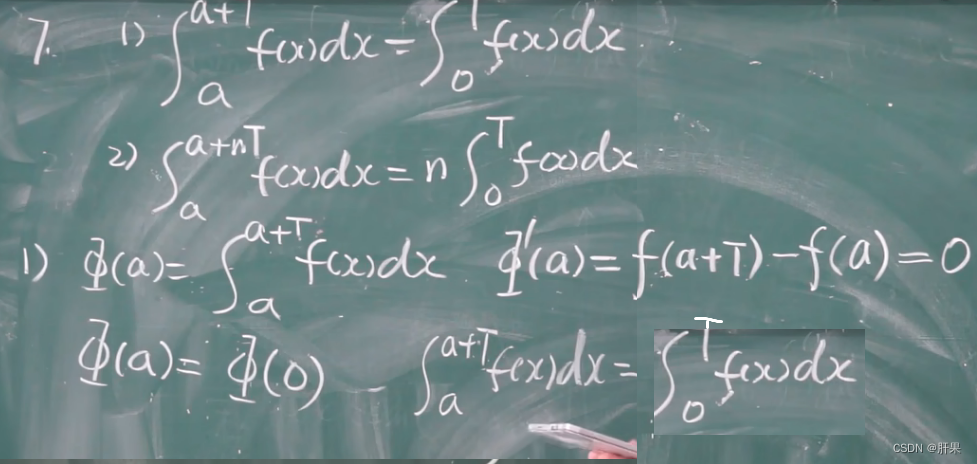 7. 1) ∫_a^{a+T} f(x)dx = ∫_0^T f(x)dx
2) ∫_a^{a+nT} f(x)dx = n ∫_0^T f(x)dx
1) Φ(a) = ∫_a^{a+T} f(x)dx Φ'(a) = f(a+T) - f(a) = 0
Φ(a) = Φ(0) ∫_a^{a+T} f(x)dx = ∫_0^T f(x)dx
CSDN @肝果